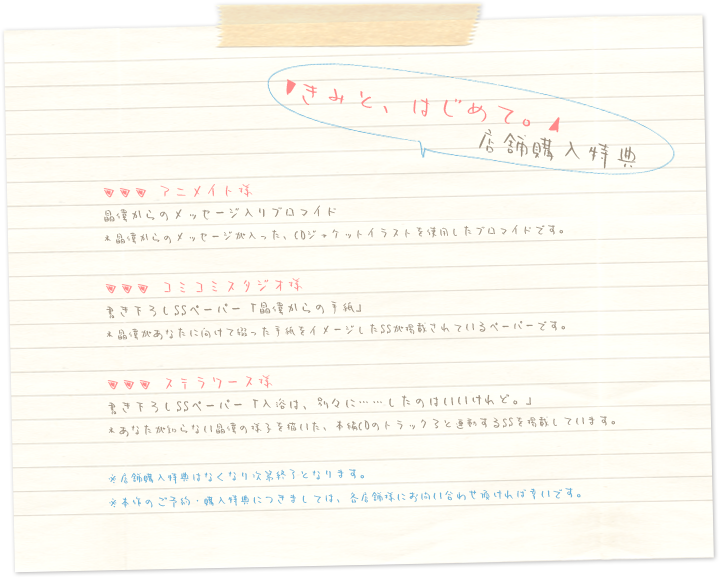 きみと、はじめて。
店舗購入特典
アニメイト様
晶優からのメッセージ入りブロマイド
*晶優からのメッセージが入った、CDジャケットイラストを使用したブロマイドです。
コミコミスタジオ様
書き下ろしSSペーパー「晶優からの手紙」
*晶優があなたに向けて綴った手紙をイメージしたSSが掲載されているペーパーです。
ステラワース様
書き下ろしSSペーパー「入浴は、別々に……したのはいいけれど。」
*あなたが知らない晶優の様子を描いた、本編CDのトラック3と連動するSSを掲載しています。
※店舗購入特典はなくなり次第終了となります。
※本作のご予約・購入特典につきましては、各店舗様にお問い合わせ頂ければ幸いです。